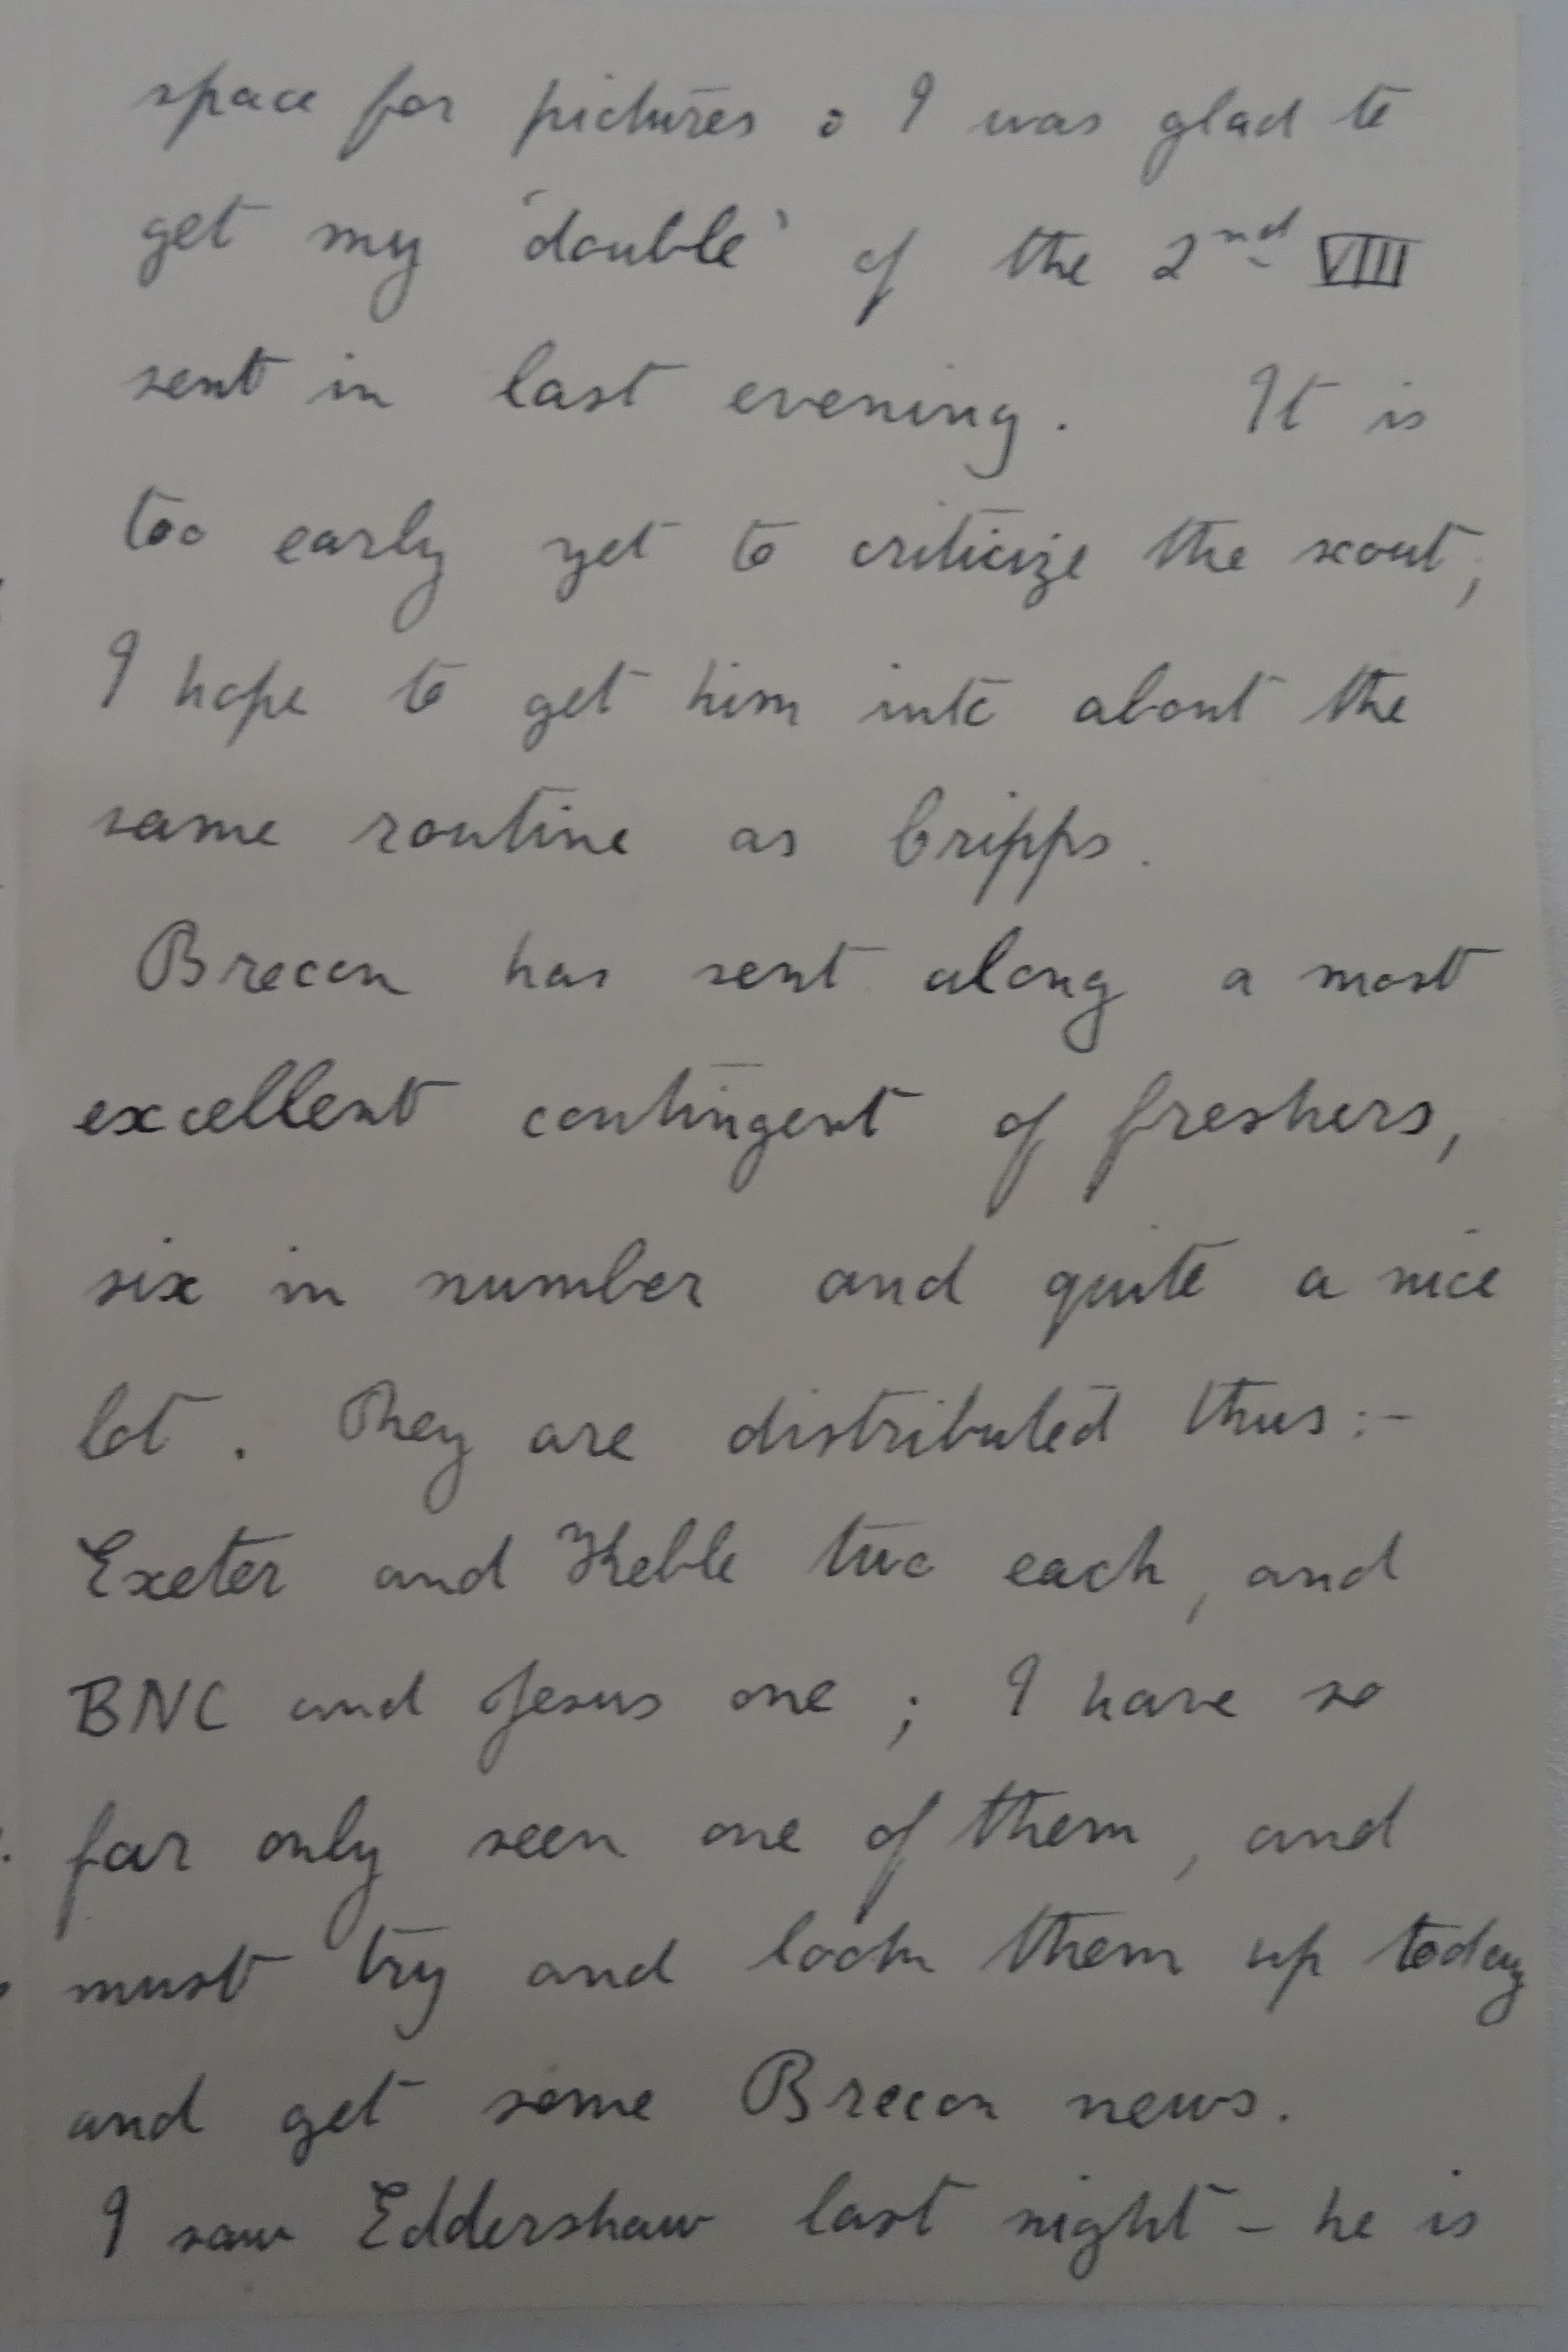 space for pictures. I was glad to
get my 'double' of the 2nd VIII
sent in last evening. It is
too early yet to criticize the scout;
I hope to get him into about the
same routine as Cripps.
Brecon has sent along a most
excellent contingent of freshers,
six in number and quite a nice
lot. They are distributed thus:-
Exeter and Keble two each, and
BNC and Jesus one; I have so
far only seen one of them, and
must try and look them up today
and get some Brecon news.
I saw Eddershaw last night - he is